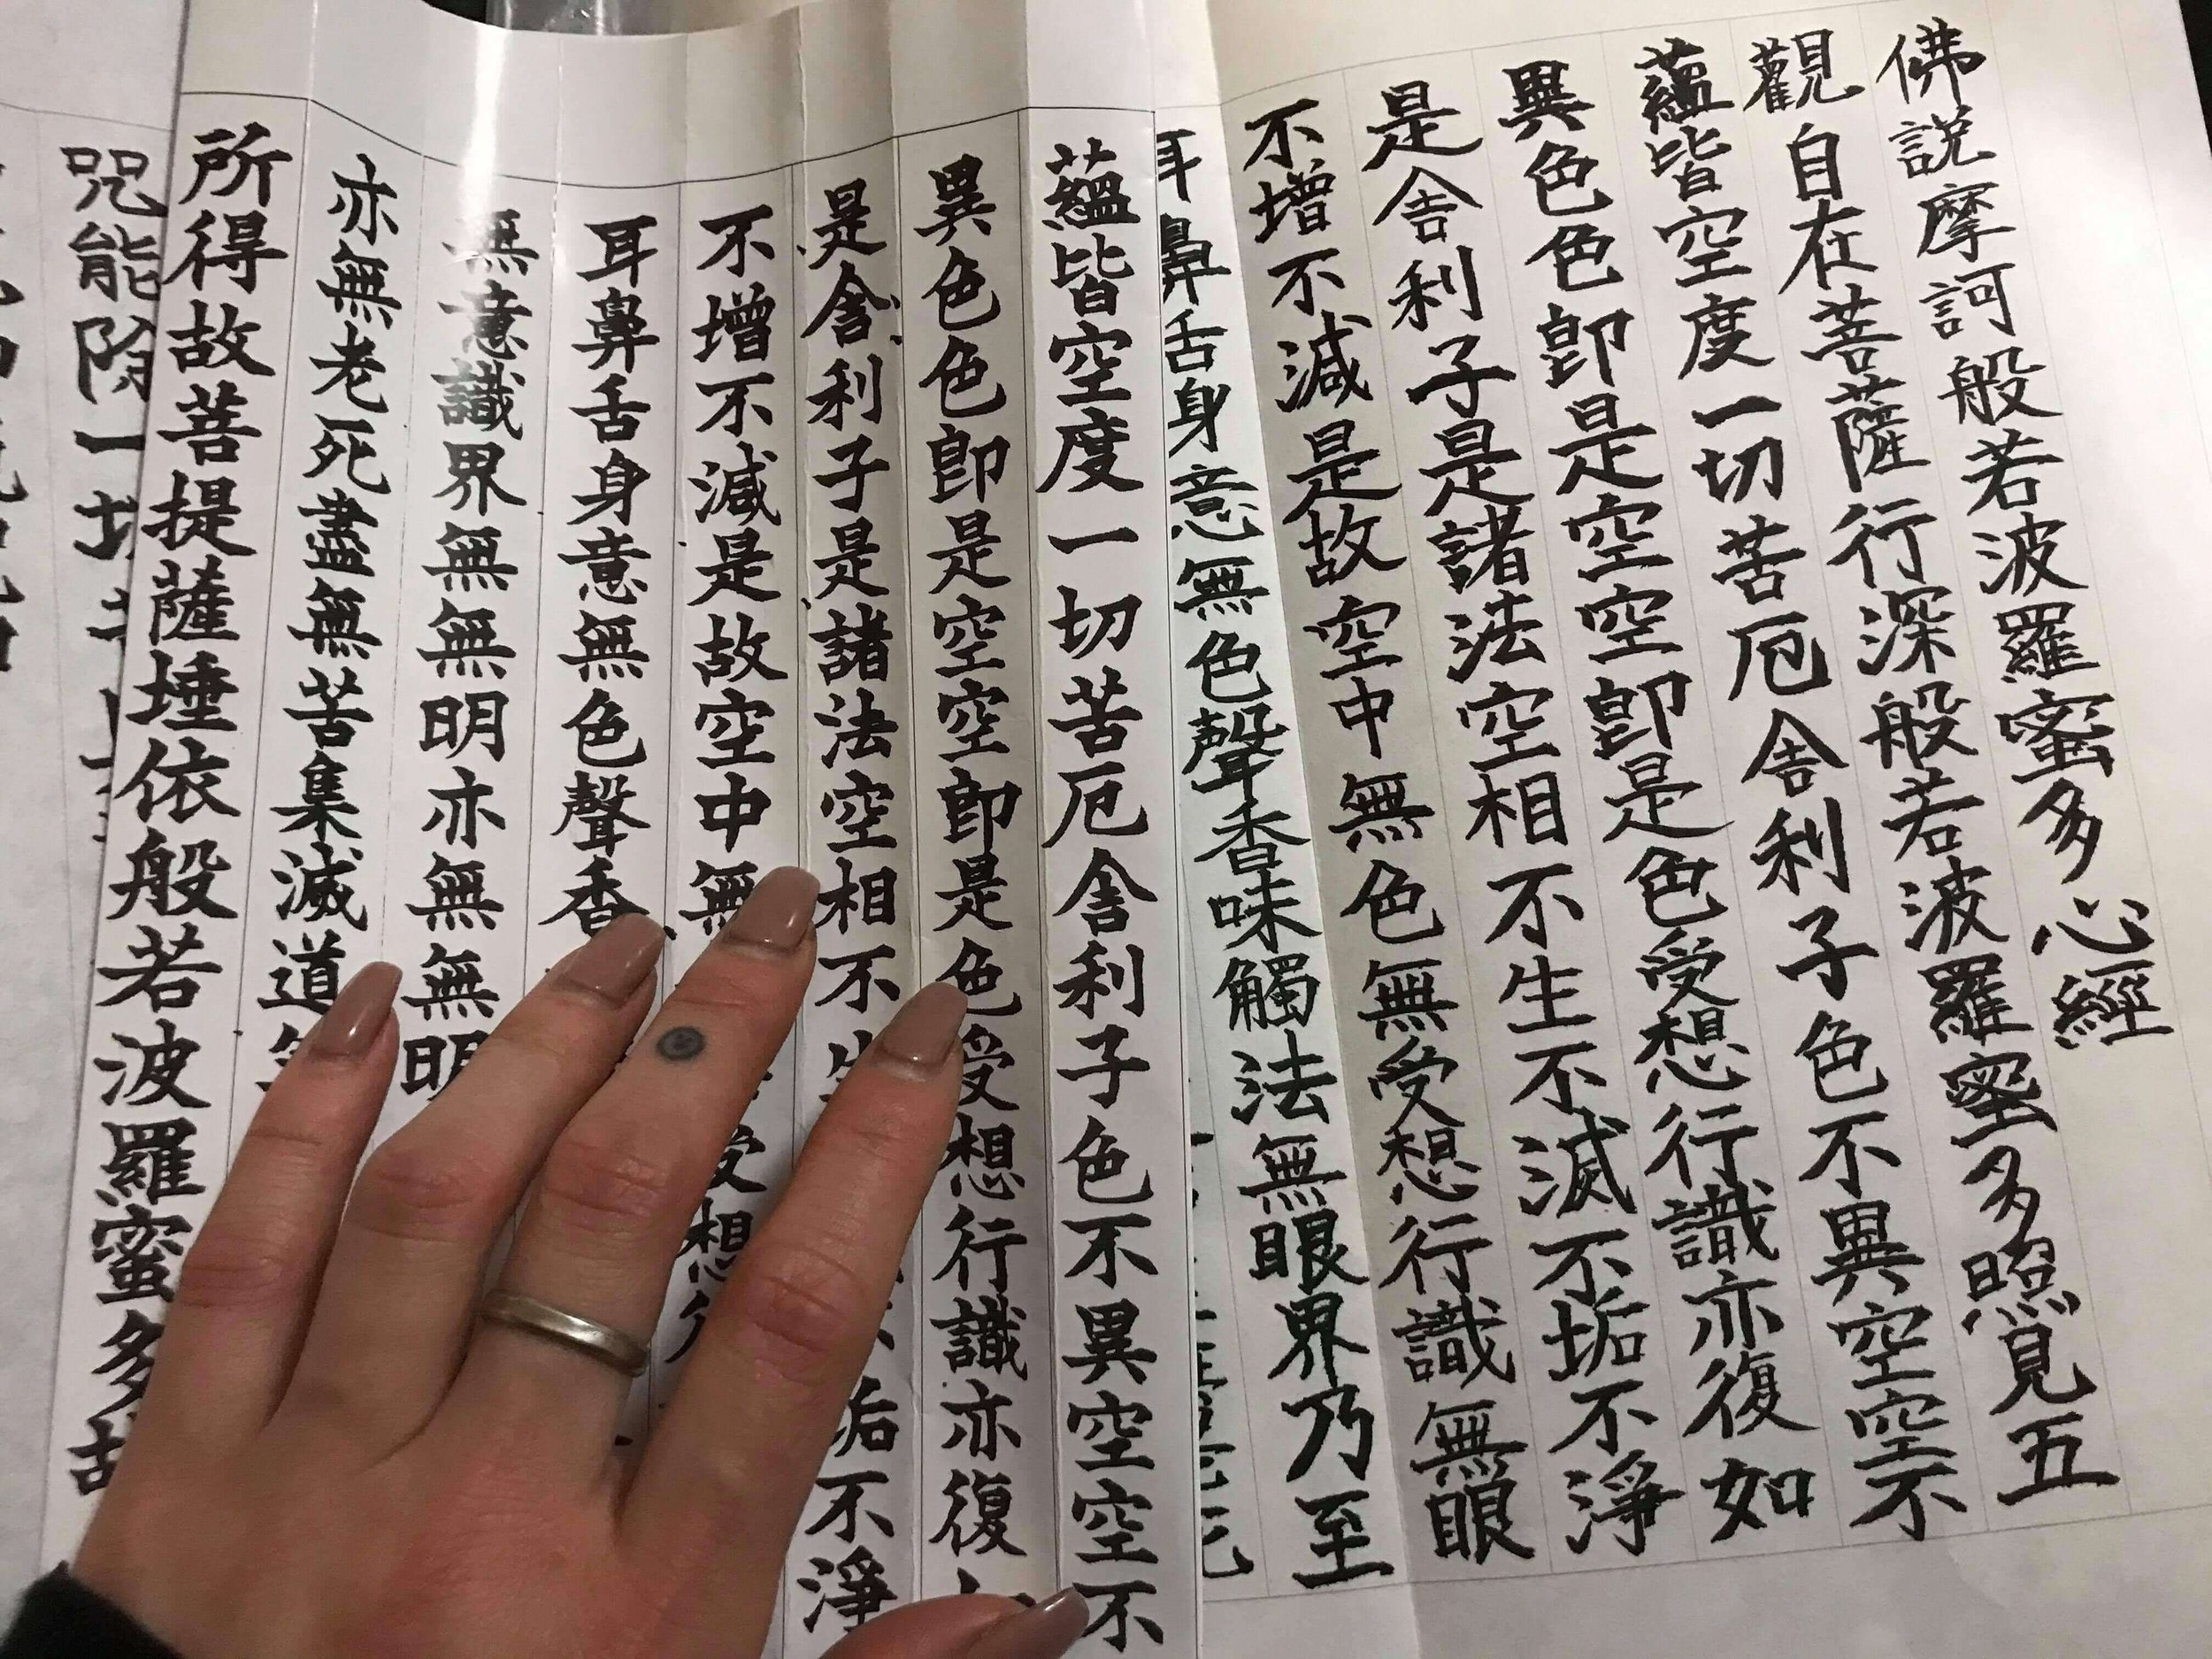 佛説摩訶般若波羅蜜多心經
觀自在菩薩行深般若波羅蜜多照見五
蘊皆空度一切苦厄舎利子色不異空空不
異色色即是空空即是色受想行識亦復如
是舎利子是諸法空相不生不滅不垢不淨
不增不減是故空中無色無受想行識無眼
耳鼻舌身意無色聲香味觸法無眼界乃至
蘊皆空度一切苦厄舎利子色不異空空不
異色色即是空空即是色受想行識亦復
是舎利子是諸法空相不生垢不淨
不增不減是故空中無受想
耳鼻舌身意無色聲香
無意識界無無明亦無無明
亦無老死盡無苦集滅道
所得故菩提薩埵依般若波羅蜜多故
咒能除一切